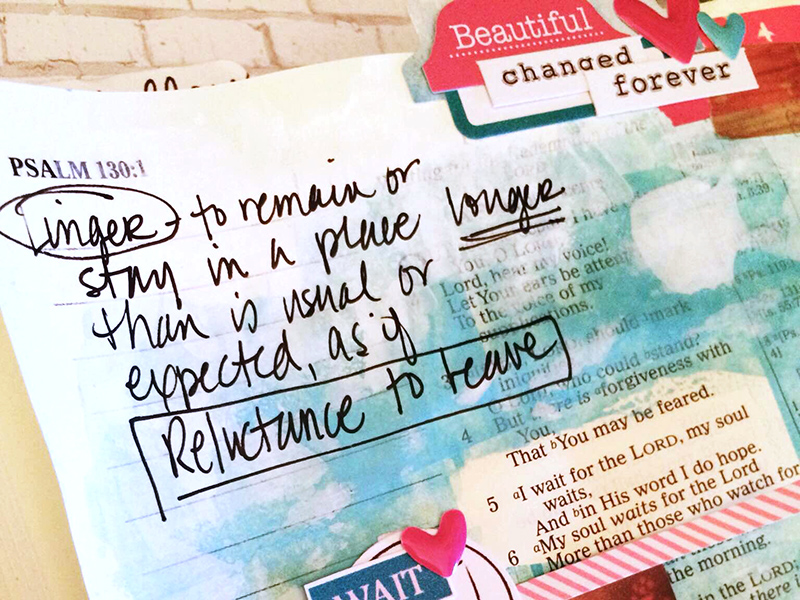 Beautiful
changed
forever
PSALM 130:1
Linger - to remain or
stay in a place longer
than is usual or
expected, as if
Reluctance to leave
LORD
O LORD
Lord, hear my voice!
Let Your ears be attent
To the voice of my
should mark
who could ᵇstand?
4 But there is ᵃforgiveness with
You,
That ᵇYou may be feared.
5 ᵃI wait for the LORD, my soul
waits,
And ᵇin His word I do hope.
6 ᵃMy soul waits for the Lord
More than those who watch for
the morning.
in the LORD;
there i
WAIT